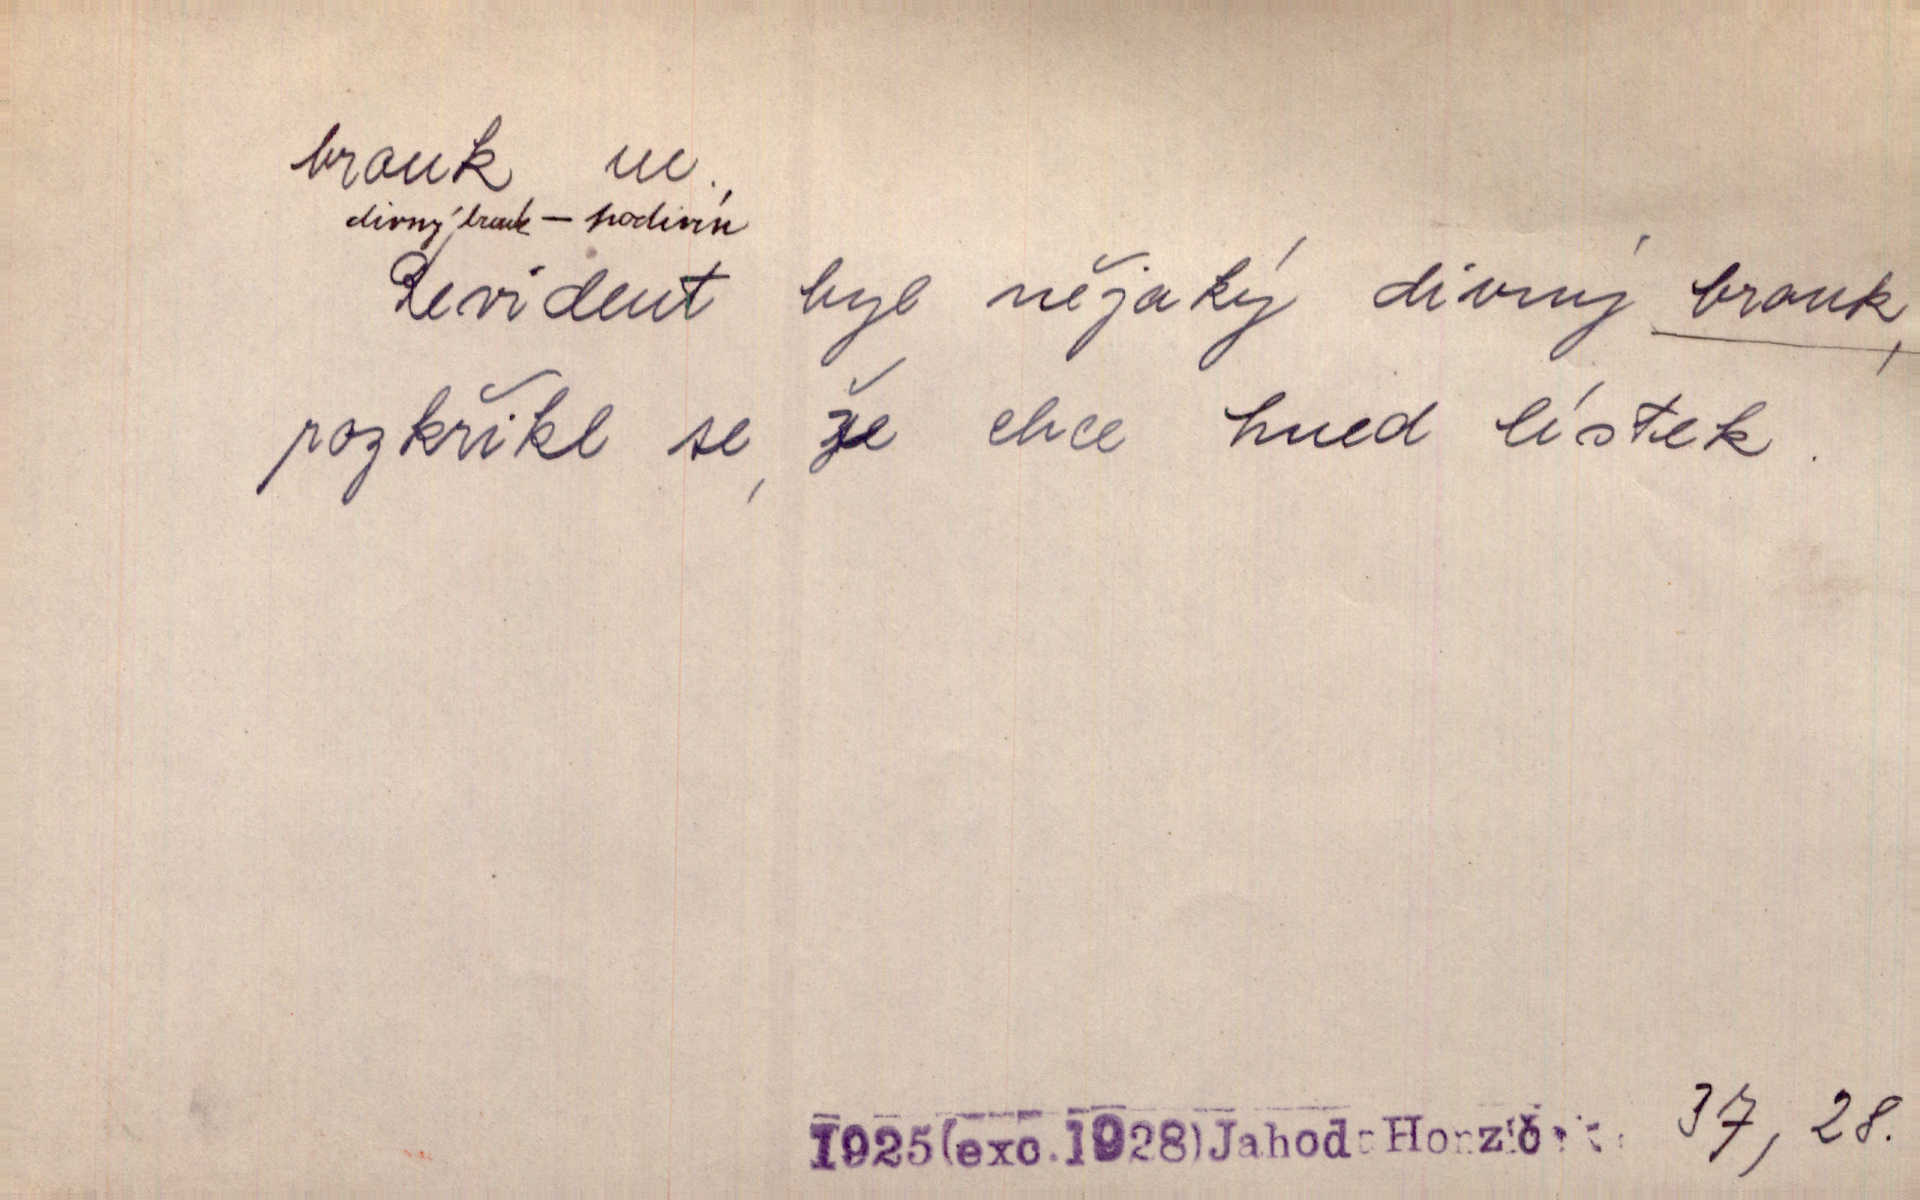 brouk m.
divný brouk — podivín
Revident byl nějaký divný brouk,
rozkřikl se, že chce hned lístek.
1925(exc.1928)Jahoda 37, 28.